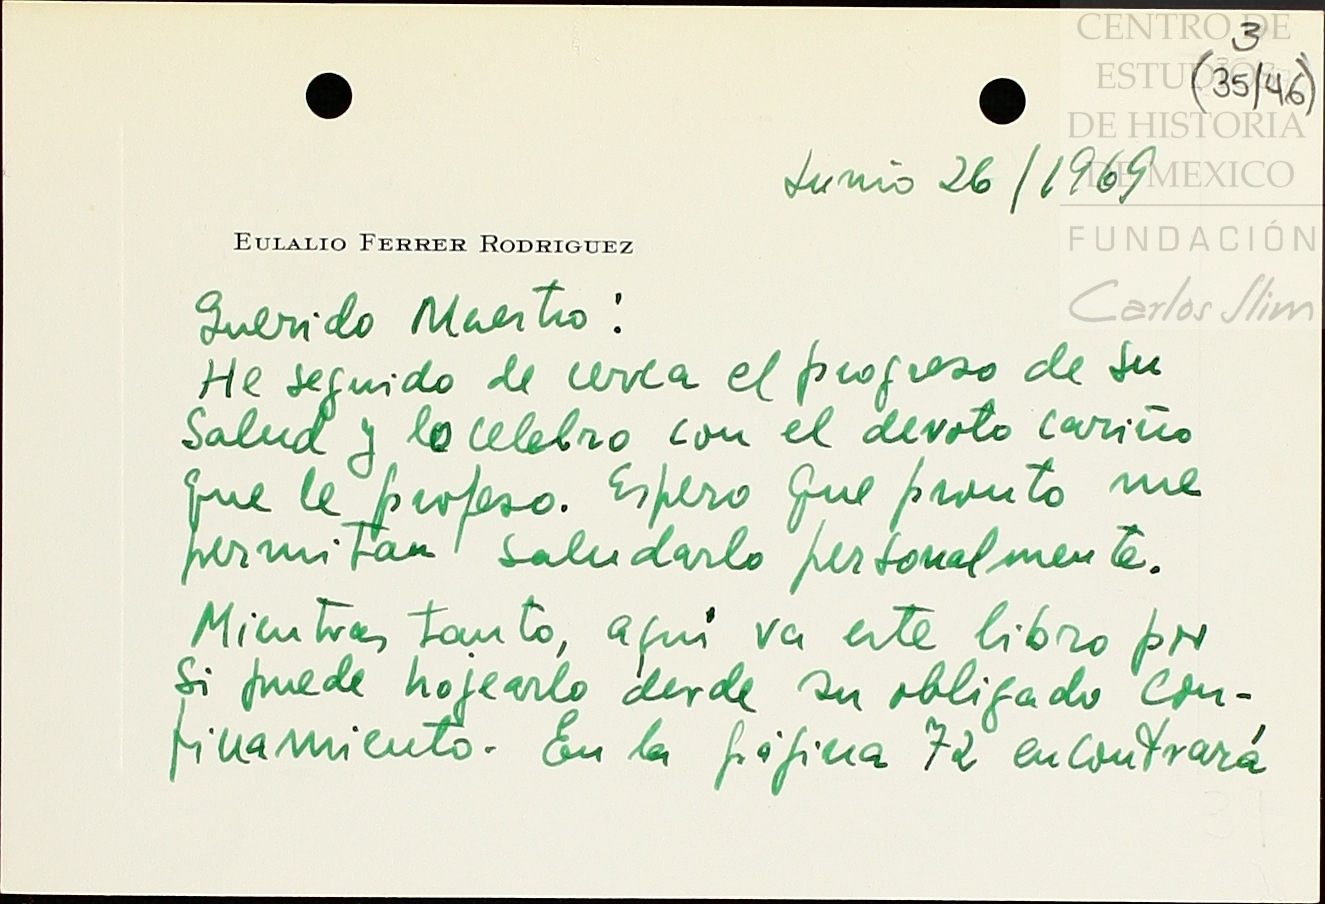 CENTRO DE
ESTUDIOS
DE HISTORIA
DE MEXICO
FUNDACIÓN
Carlos Slim
3
(35/46)
Junio 26/1969
EULALIO FERRER RODRIGUEZ
Querido Maestro:
He seguido de cerca el progreso de su
salud y lo celebro con el devoto cariño
que le profeso. Espero que pronto me
permitan saludarlo personalmente.
Mientras tanto, aquí va este libro por
si puede hojearlo desde su obligado con-
finamiento. En la página 72 encontrará